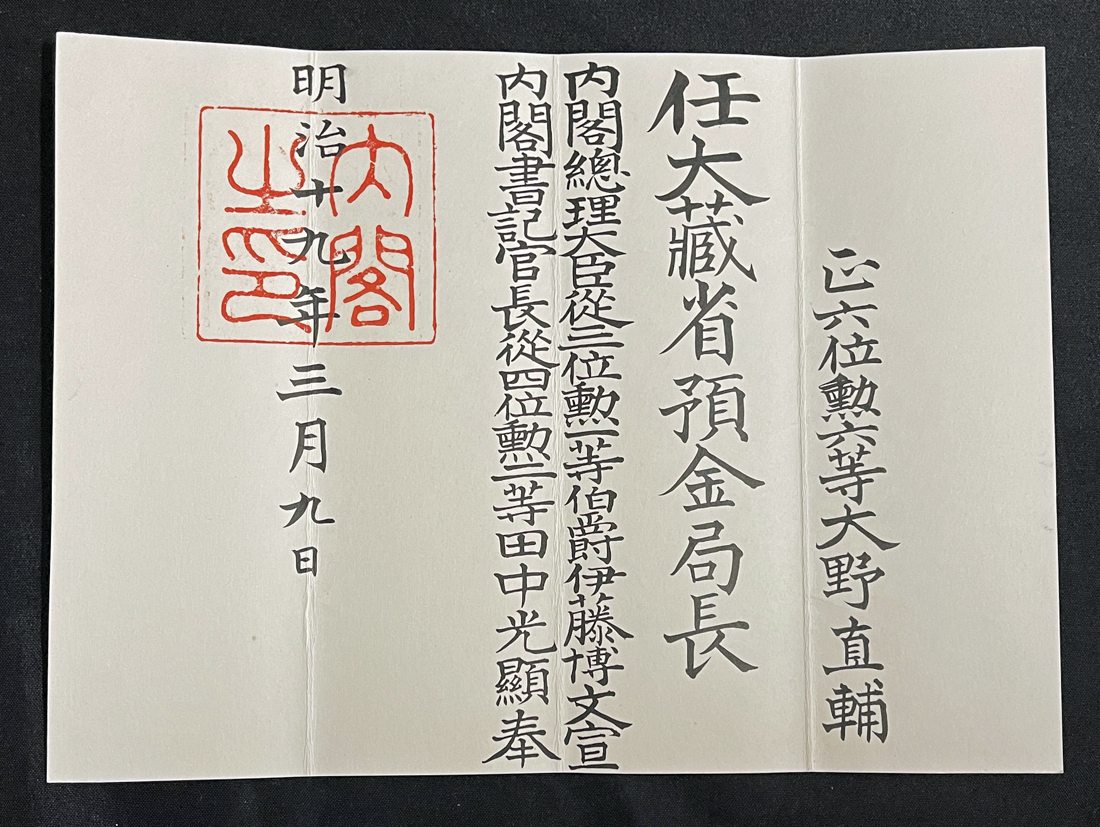 正六位勲六等大野直輔
任大藏省預金局長
内閣總理大臣從三位勲一等伯爵伊藤博文宣
内閣書記官長從四位勲三等田中光顯奉
明治十九年三月九日
内閣之印